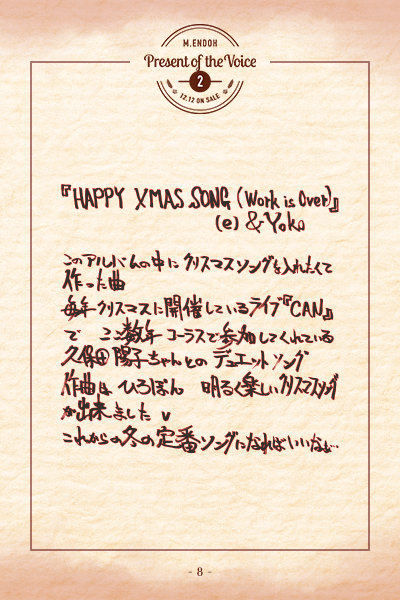 M.ENDOH
Present of the Voice
2
12.12 ON SALE
『HAPPY XMAS SONG (Work is Over)』
(e) & Yoko
このアルバムの中に クリスマスソングを入れたくて
作った曲
毎年クリスマスに開催しているライブ『CAN』
で ここ数年 コーラスで参加してくれている
久保田陽子ちゃんとの デュエットソング
作曲は ひろぽん 明るく楽しいクリスマスソング
が出来ました v
これからの冬の定番ソングになればいいなぁ…
- 8 -